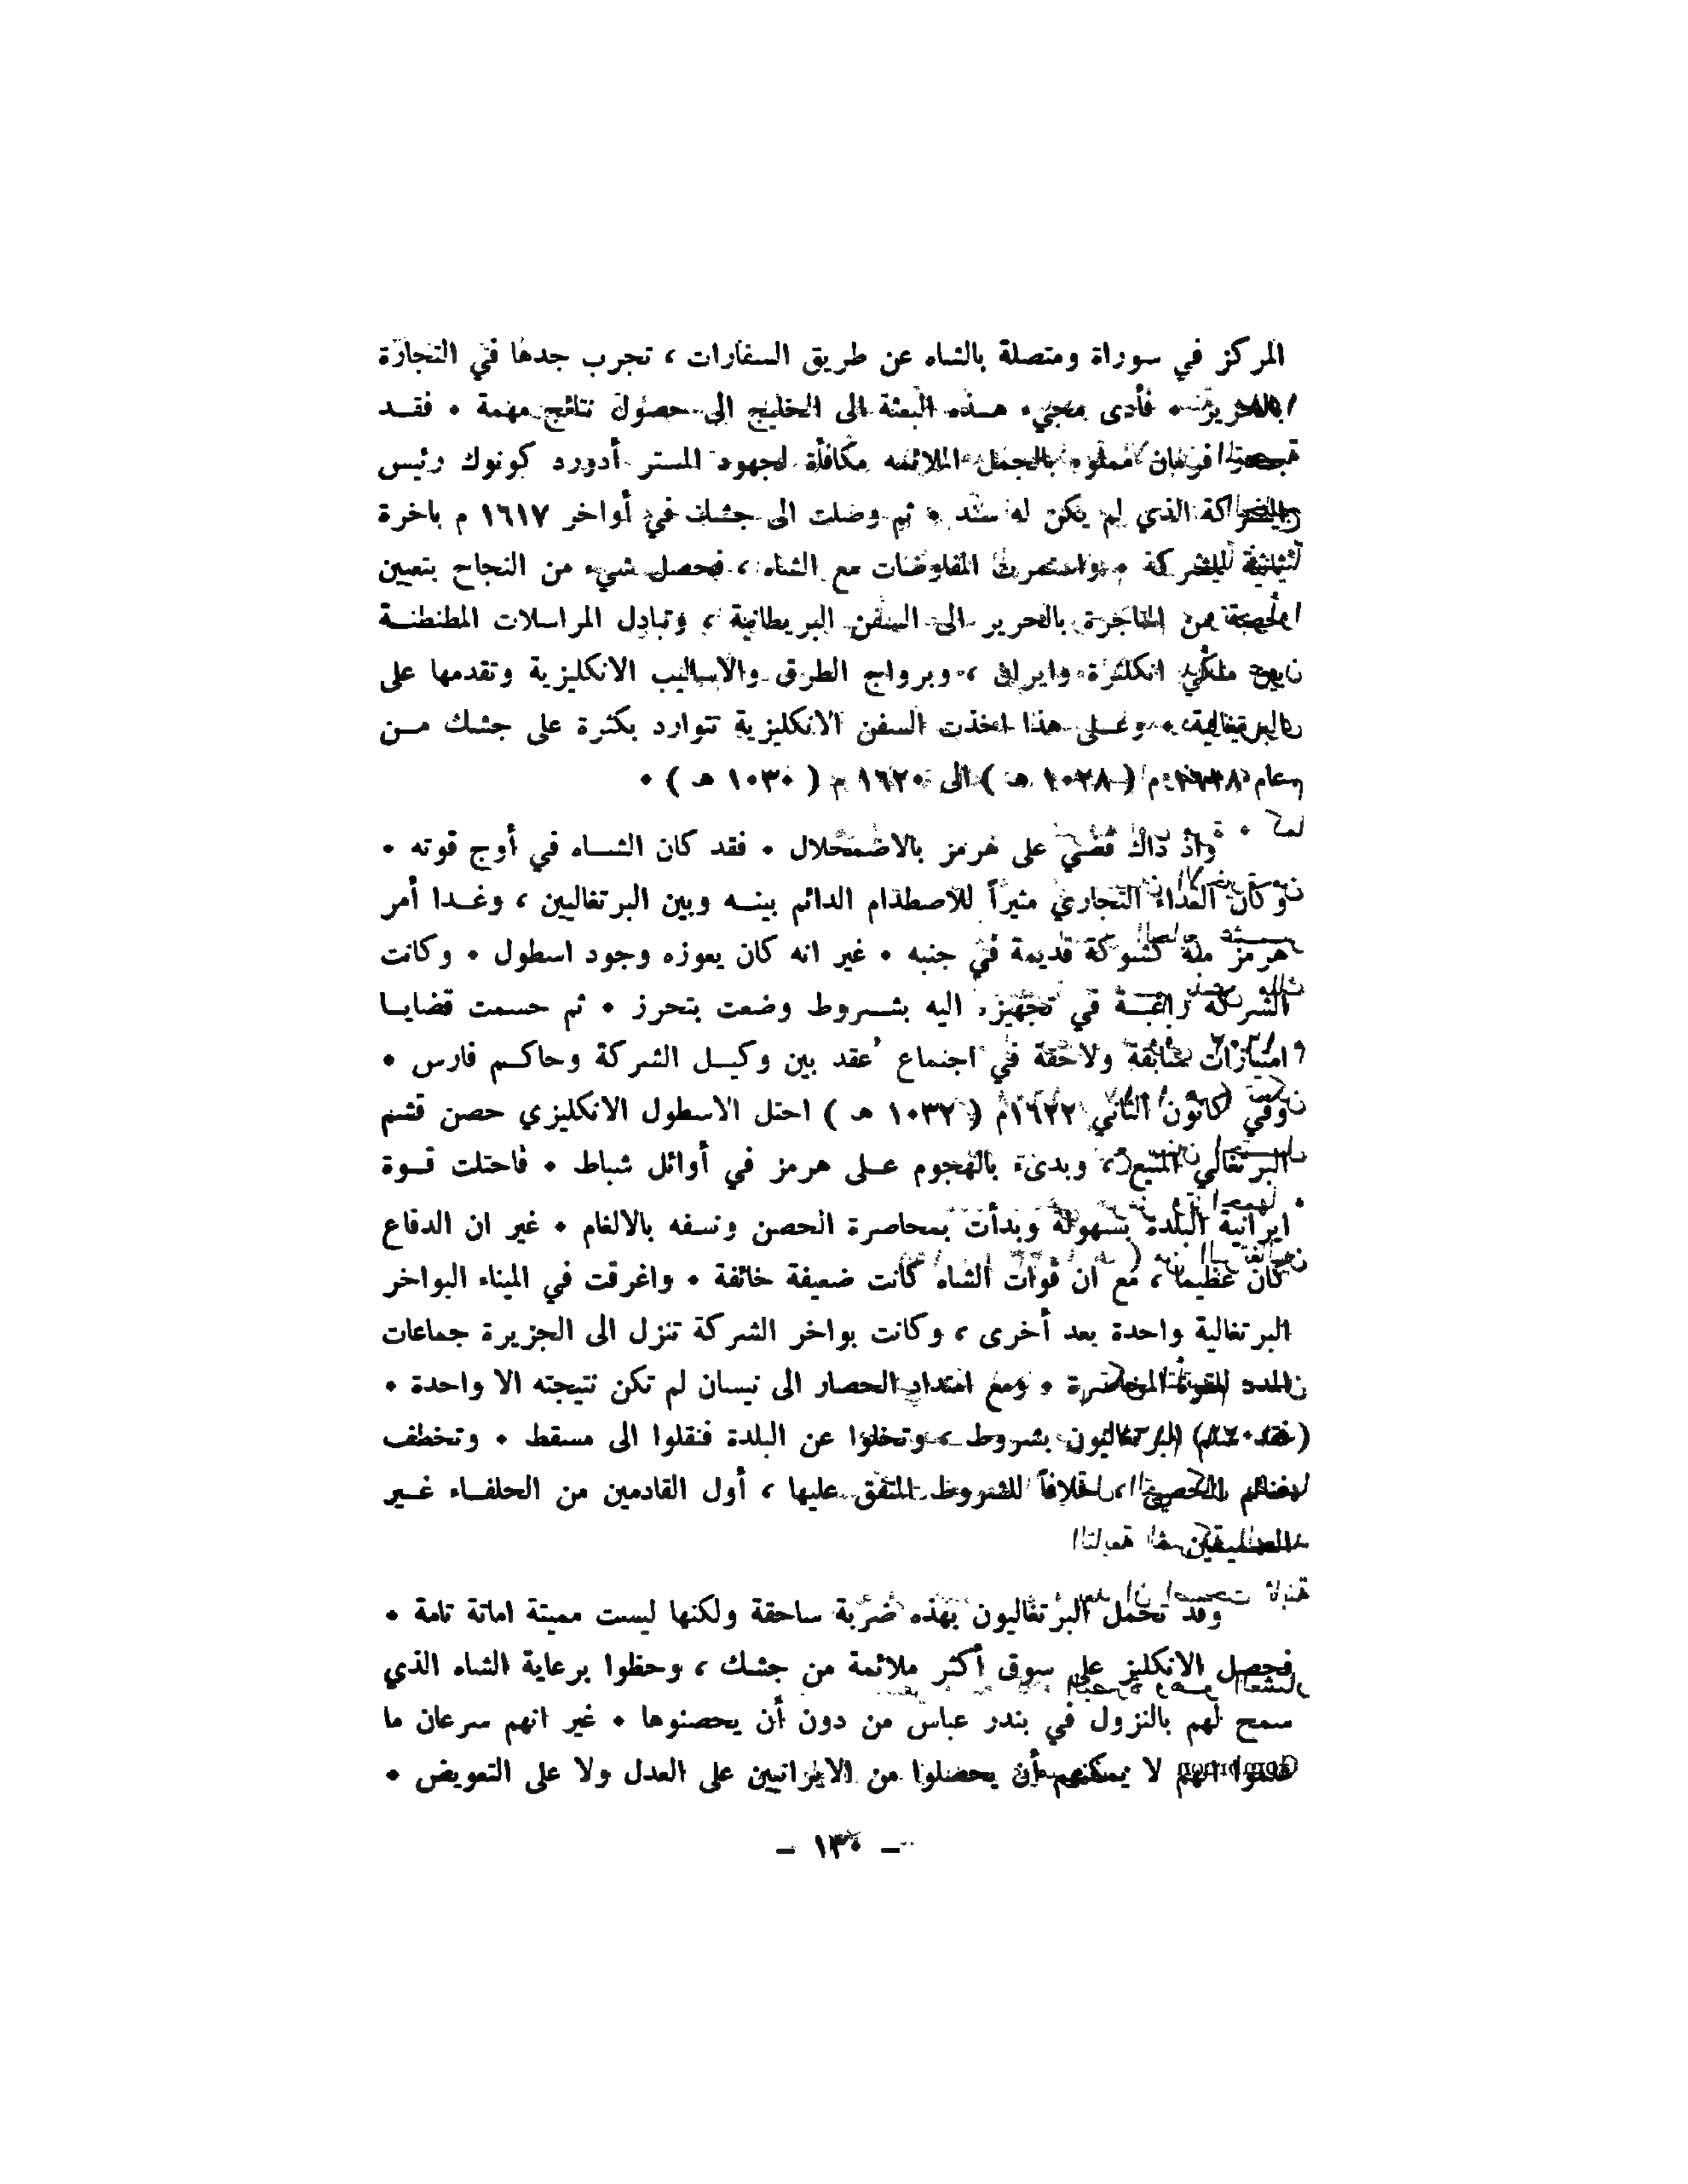 المركز في سوراة ومتصلة بالشاه عن طريق السفارات ، تجرب جدها في التجارة
بالحرير • فأدى مجيء هـذه البعثة الى الخليج الى حصول نتائج مهمة • فقـد
فرمان مملوء بالجمل الملائمة مكافأة لجهود المستر أدورد كونوك رئيس
الشركة الذي لم يكن له سند • ثم وصلت الى جشك في أواخر ١٦١٧ م باخرة
ثانية للشركة • واستمرت المفاوضات مع الشاه ، فحصل شيء من النجاح بتعيين
من المتاجرة بالحرير الى السفن البريطانية ، وتبادل المراسلات المطنطنـة
بين ملكي انكلترة وايران ، وبرواج الطرق والاساليب الانكليزية وتقدمها على
البرتغالية • وعـلى هذا اخذت السفن الانكليزية تتوارد بكثرة على جشك مـن
عام ١٦١٨ م ( ١٠٢٨ هـ ) الى ١٦٢٠ م ( ١٠٣٠ هـ ) •
واذ ذاك قضي على هرمز بالاضمحلال • فقد كان الشـاه في أوج قوته •
وكان العداء التجاري مثيراً للاصطدام الدائم بينـه وبين البرتغاليين ، وغـدا أمر
هرمز كشوكة قديمة في جنبه • غير انه كان يعوزه وجود اسطول • وكانت
الشركة راغبـة في تجهيزه اليه بشـروط وضعت بتحرز • ثم حسمت قضايـا
امتيازات سابقة ولاحقة في اجتماع عُقد بين وكيـل الشركة وحاكـم فارس •
وفي كانون الثاني ١٦٢٢م ( ١٠٣٢ هـ ) احتل الاسطول الانكليزي حصن قشم
البرتغالي المنيع ، وبدىء بالهجوم عـلى هرمز في أوائل شباط • فاحتلت قـوة
ايرانية البلدة بسهولة وبدأت بمحاصرة الحصن ونسفه بالالغام • غير ان الدفاع
كان عظيما ، مع ان قوات الشاه كانت ضعيفة خائفة • واغرقت في الميناء البواخر
البرتغالية واحدة بعد أخرى ، وكانت بواخر الشركة تنزل الى الجزيرة جماعات
المدد للقوة المحاصرة • ومع امتداد الحصار الى نيسان لم تكن نتيجته الا واحدة •
فقد سلم البرتغاليون بشروط ، وتخلوا عن البلدة فنقلوا الى مسقط • وتخطف
غنائم الحصن ، خلافاً للشروط المتفق عليها ، أول القادمين من الحلفـاء غـير
وقد تحمل البرتغاليون بهذه ضربة ساحقة ولكنها ليست مميتة اماتة تامة •
فحصل الانكليز على سوق أكثر ملائمة من جشك ، وحظوا برعاية الشاه الذي
سمح لهم بالنزول في بندر عباس من دون أن يحصنوها • غير انهم سرعان ما
علموا انهم لا يمكنهم أن يحصلوا من الايرانيين على العدل ولا على التعويض •
– ١٣٠ –